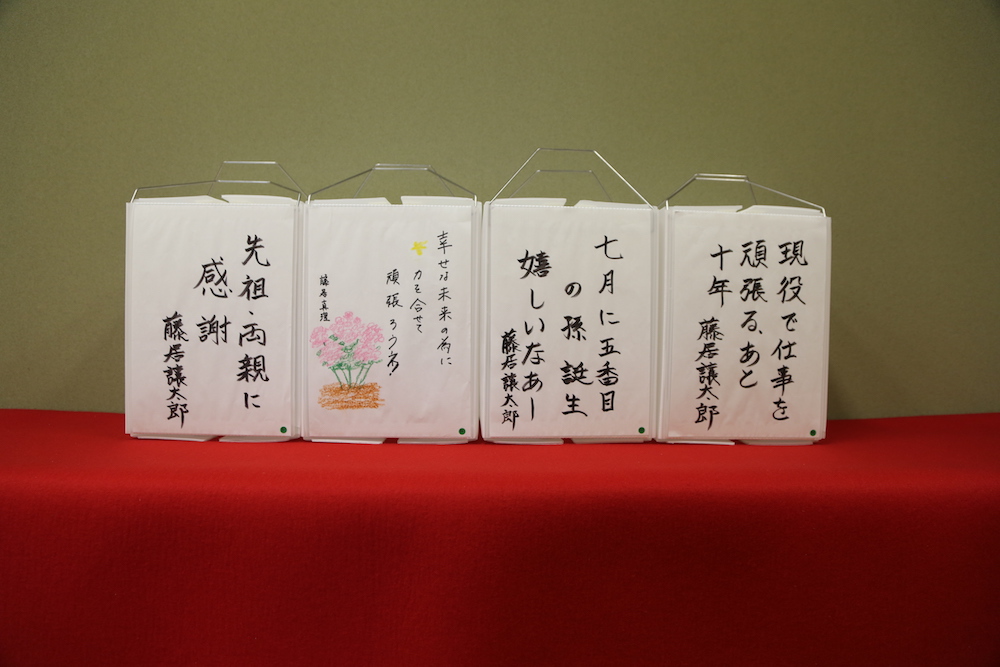 現役で仕事を
頑張る、あと
十年
藤居讓太郎
七月に五番目
の孫誕生
嬉しいなあー
藤居讓太郎
幸せな未来の為に
力を合せて
頑張ろうネ
藤居真理
先祖・両親に
感謝
藤居讓太郎